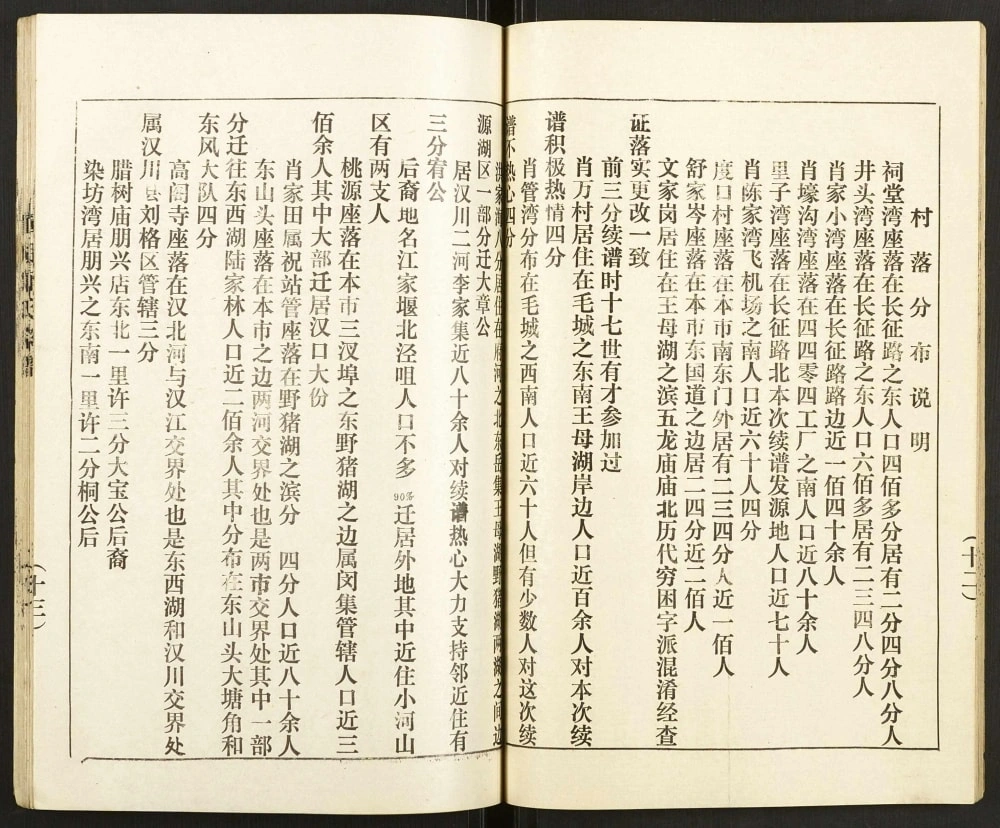 村落分布说明
祠堂湾座落在长征路之东人口四佰多分居有二分四分八分人
井头湾座落在长征路之东人口六佰多居有二三四八分人
肖家小湾座落在长征路路边近一佰四十余人
肖壕沟湾座落在四四零四工厂之南人口近八十余人
里子湾座落在长征路北本次续谱发源地人口近七十人
肖陈家湾飞机场之南人口近六十人四分
度口村座落在本市南东门外居有二三四分人近一佰人
舒家岑座落在本市东国道之边居二四分近二佰人
文家岗居住在王母湖之滨五龙庙庙北历代穷困字派混淆经查
证落实更改一致
前三分续谱时十七世有才参加过
肖万村居住在毛城之东南王母湖岸边人口近百余人对本次续
谱积极热情四分
肖管湾分布在毛城之西南人口近六十人但有少数人对这次续
谱不热心四分
洪家湖八分居住在府河之北东岳集王母湖野猪湖两湖之间边
源湖区一部分迁大章公
居汉川二河李家集近八十余人对续谱热心大力支持邻近住有
三分宥公
后裔地名江家堰北泾咀人口不多90%迁居外地其中近住小河山
区有两支人
桃源座落在本市三汊埠之东野猪湖之边属闵集管辖人口近三
佰余人其中大部迁居汉口大份
肖家田属祝站管座落在野猪湖之滨分 四分人口近八十余人
东山头座落在本市之边两河交界处也是两市交界处其中一部
分迁往东西湖陆家林人口近二佰余人其中分布在东山头大塘角和
东风大队四分
高阁寺座落在汉北河与汉江交界处也是东西湖和汉川交界处
属汉川县刘格区管辖三分
腊树庙朋兴店东北一里许三分大宝公后裔
染坊湾居朋兴之东南一里许二分桐公后
（十二）
（十三）